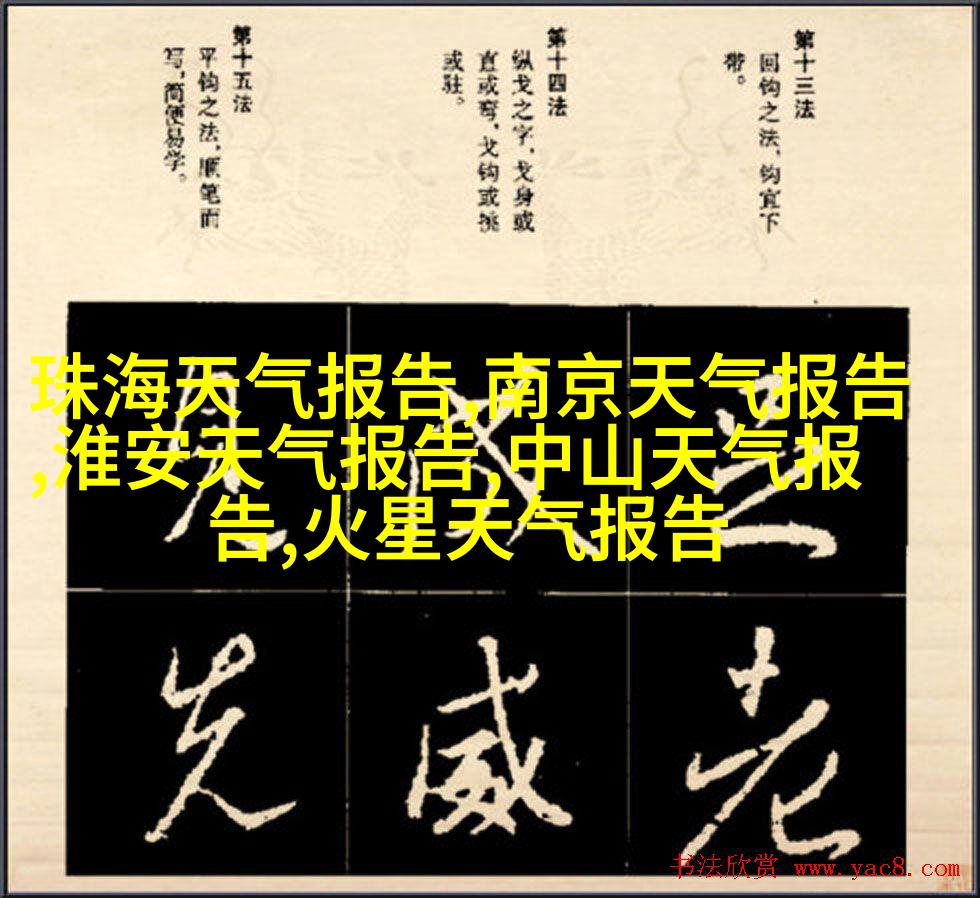 第十三法
回钩之法，钩宜下
带。
第十四法
纵戈之字，戈身或
直或弯，戈钩或挑
或驻。
第十五法
平钩之法，顺笔而
写，简便易学。
珠海天气报告,南京天气报告
,淮安天气报告,中山天气报
告,火星天气报告
老
威
先
书法欣赏 www.yac8.com